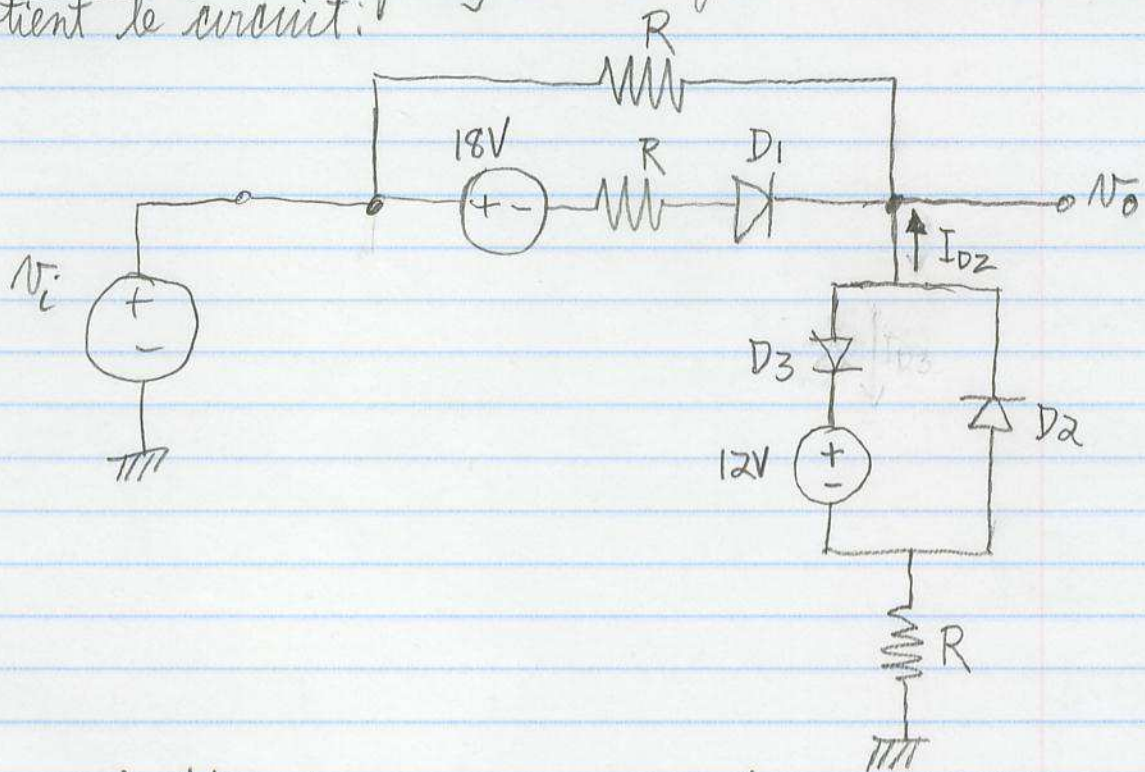 tient le circuit:
R
18V
R
D1
+ -
Vo
ID2
Vi
+
-
D3
ID3
D2
12V
+
-
R